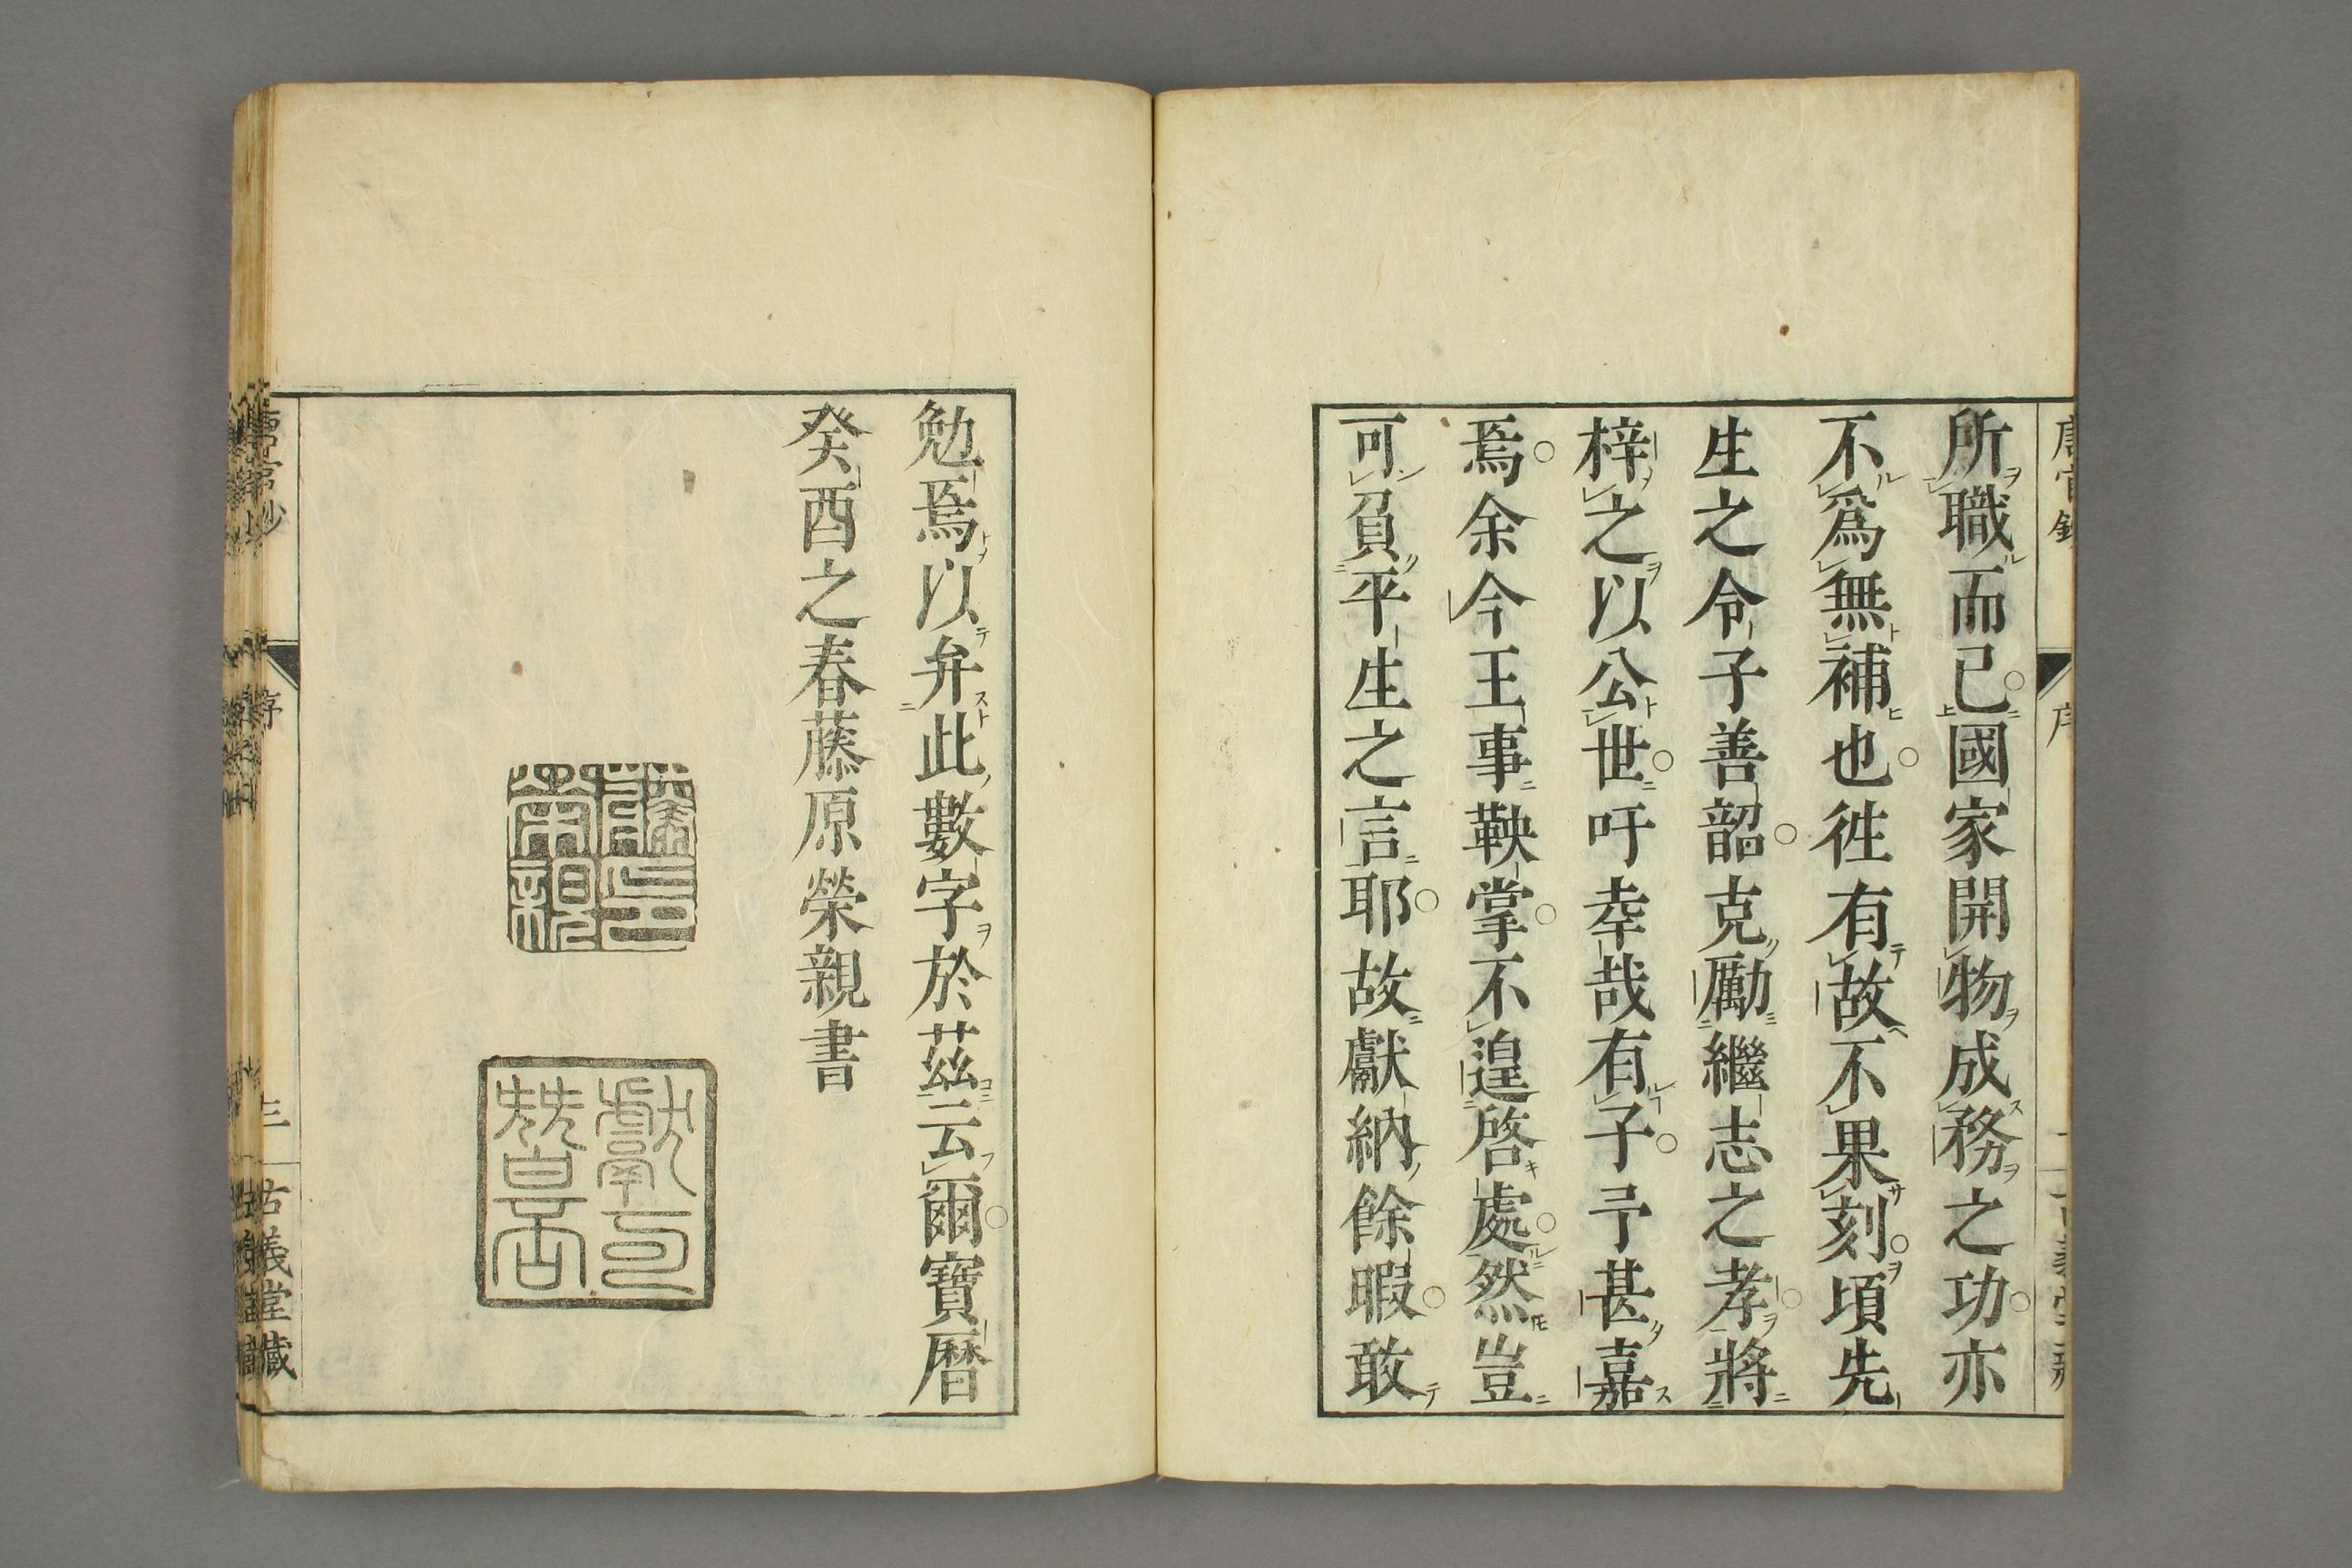 所職而已國家開物成務之功亦
不爲無補也徃有故不果刻頃先
生之令子善韶克勵繼志之孝將
梓之以公世吁幸哉有子予甚嘉
焉余今王事鞅掌不遑啓處然豈
可負平生之言耶故獻納餘暇敢
勉焉以弁此數字於茲云爾寶曆
癸酉之春藤原榮親書
序
三
古義堂藏